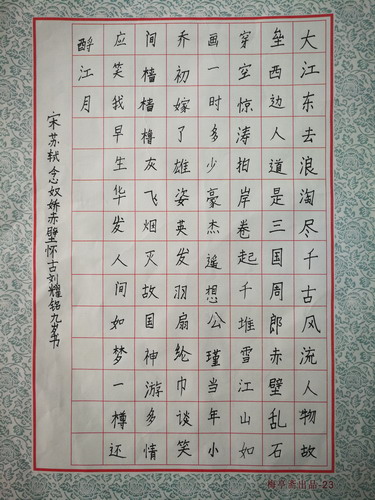 大江东去浪淘尽千古风流人物故
垒西边人道是三国周郎赤壁乱石
穿空惊涛拍岸卷起千堆雪江山如
画一时多少豪杰遥想公瑾当年小
乔初嫁了雄姿英发羽扇纶巾谈笑
间樯樯橹灰飞烟灭故国神游多情
应笑我早生华发人间如梦一樽还
酹江月
宋苏轼念奴娇赤壁怀古刘耀铭九岁书
梅亭斋出品-23